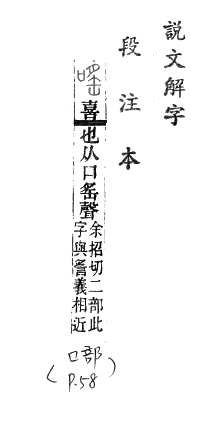 說文解字
段注本
喜也从口䍃聲
余招切二部此
字與義相近
(口部
P.58)